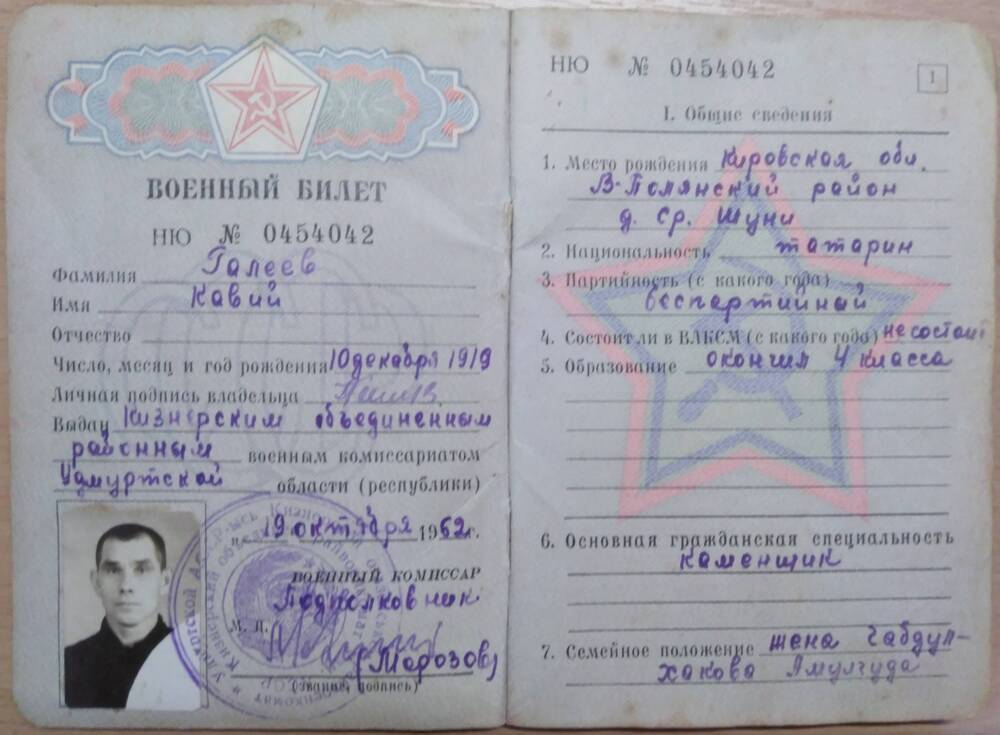 ВОЕННЫЙ БИЛЕТ
НЮ № 0454042
Фамилия Галеев
Имя Кавий
Отчество
Число, месяц и год рождения 10 декабря 1919
Личная подпись владельца
Выдан Кизнерским объединенным
районным военным комиссариатом
Удмуртской области (республики)
„19 октября 1962г.
ВОЕННЫЙ КОМИССАР
Подполковник
М. П.
(Морозов)
(звание, подпись)
НЮ № 0454042
1
I. Общие сведения
1. Место рождения Кировская обл.
В-Полянский район
д. Ср. Шуни
2. Национальность татарин
3. Партийность (с какого года)
беспартийный
4. Состоит ли в ВЛКСМ (с какого года) не состоит
5. Образование окончил 4 класса
6. Основная гражданская специальность
Каменщик
7. Семейное положение жена Габдул-
хакова